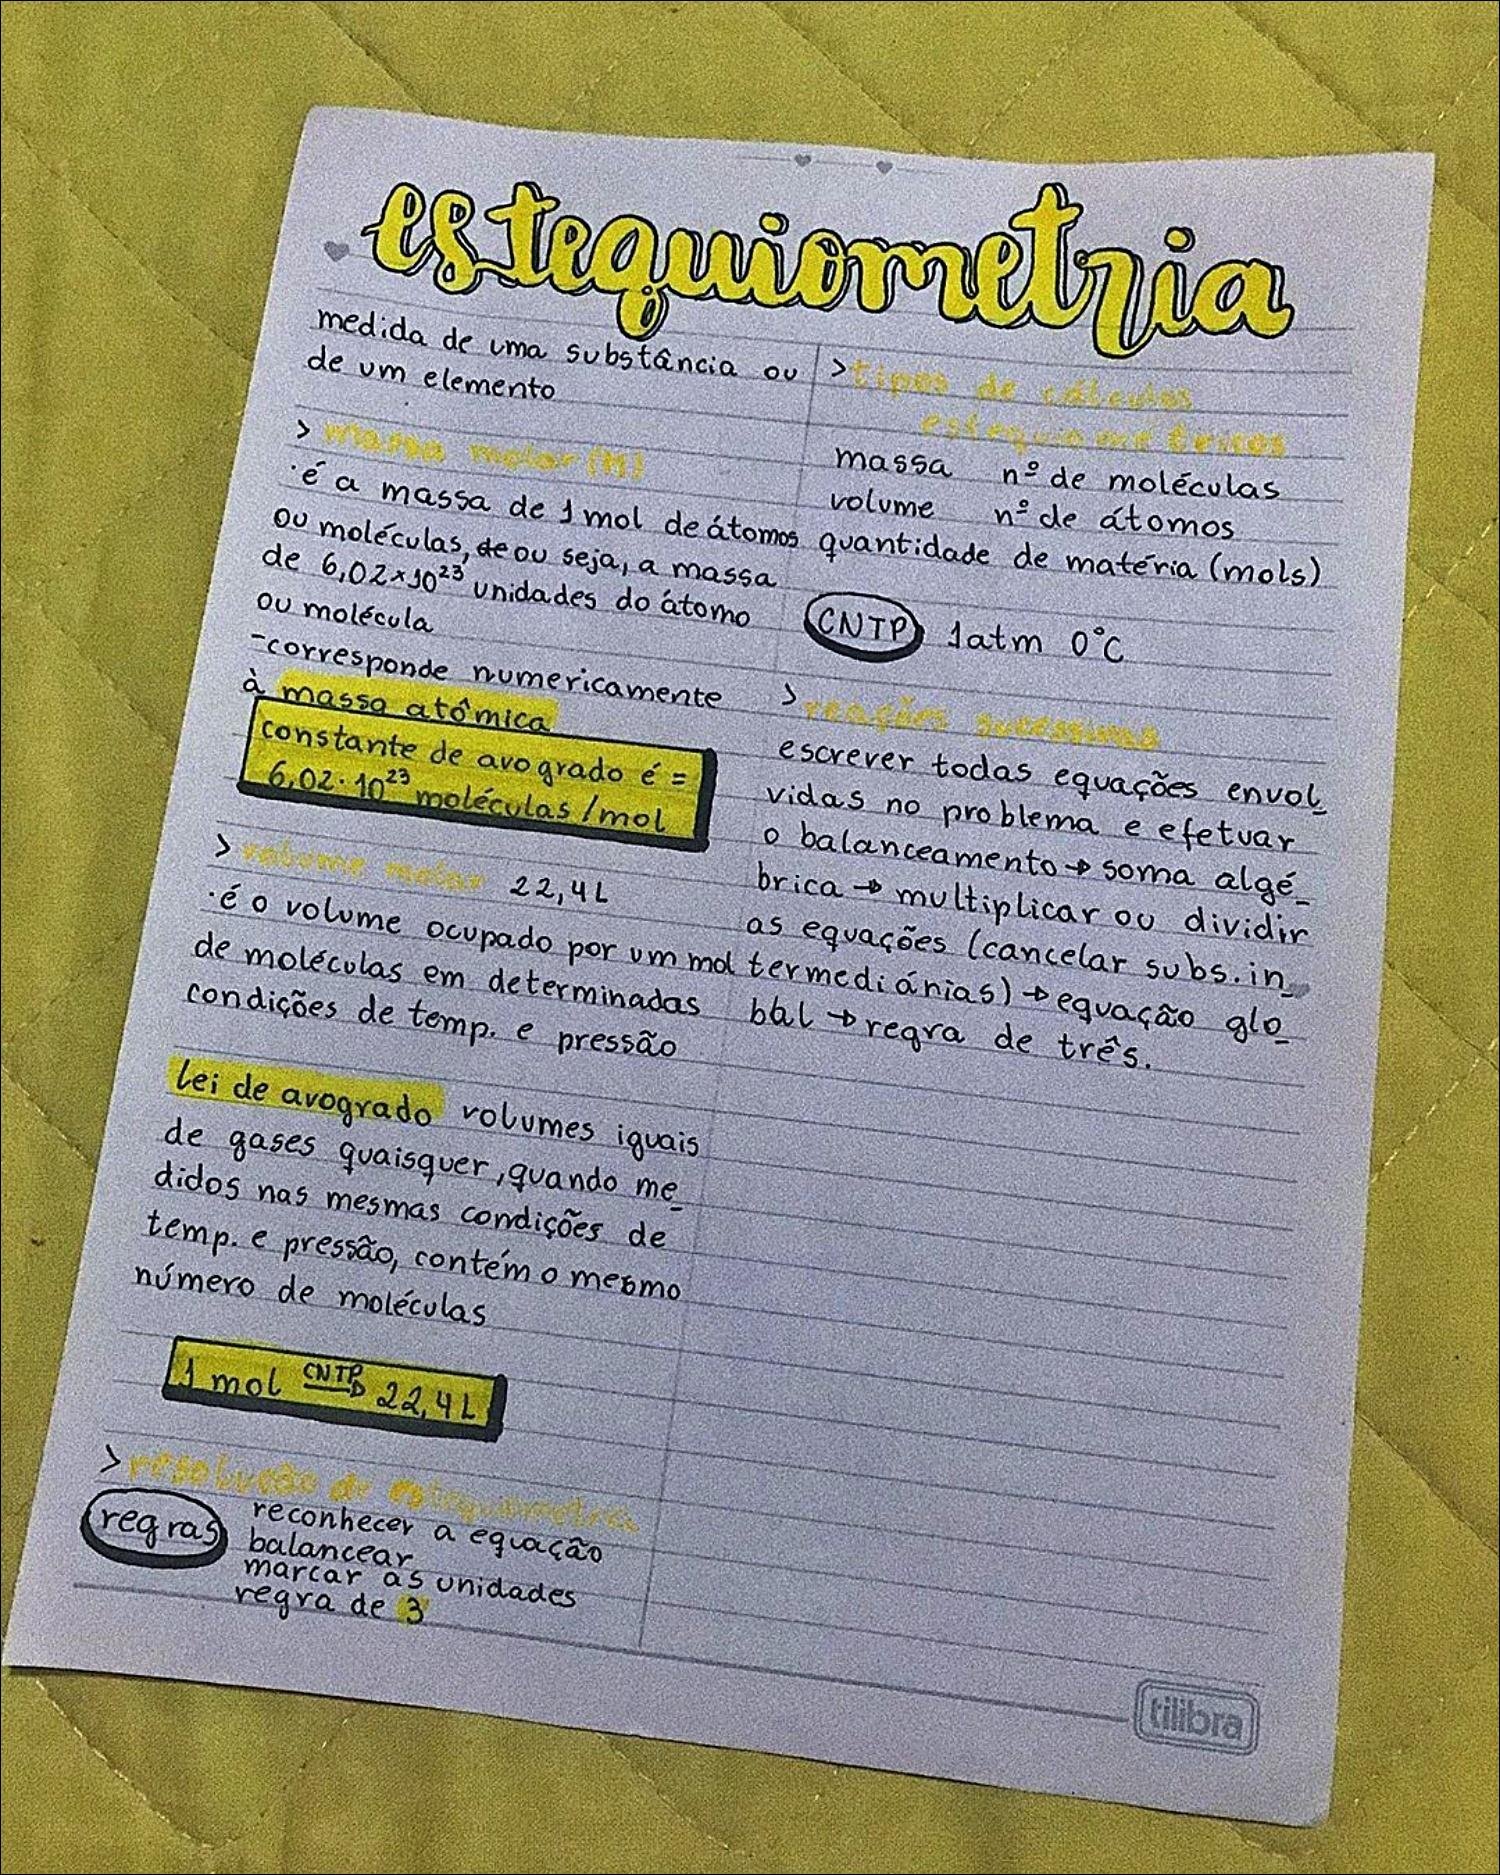 estequiometria
medida de uma substância ou
de um elemento
> massa molar (M)
·é a massa de 1 mol de átomos
ou moléculas, de ou seja, a massa
de 6,02×10²³ unidades do átomo
ou molécula
-corresponde numericamente
à massa atômica
constante de avogrado é =
6,02·10²³ moléculas/mol
> volume molar 22,4L
·é o volume ocupado por um mol
de moléculas em determinadas
condições de temp. e pressão
lei de avogrado volumes iguais
de gases quaisquer, quando me_
didos nas mesmas condições de
temp. e pressão, contém o mesmo
número de moléculas
1 mol CNTP→ 22,4L
> resolução de estequiometria
regras reconhecer a equação
balancear
marcar as unidades
regra de 3
> tipos de cálculos
estequiométricos
massa nº de moléculas
volume nº de átomos
quantidade de matéria (mols)
CNTP 1atm 0°C
> reações sucessivas
escrever todas equações envol_
vidas no problema e efetuar
o balanceamento → soma algé_
brica → multiplicar ou dividir
as equações (cancelar subs. in_
termediárias) → equação glo_
bal → regra de três.
tilibra